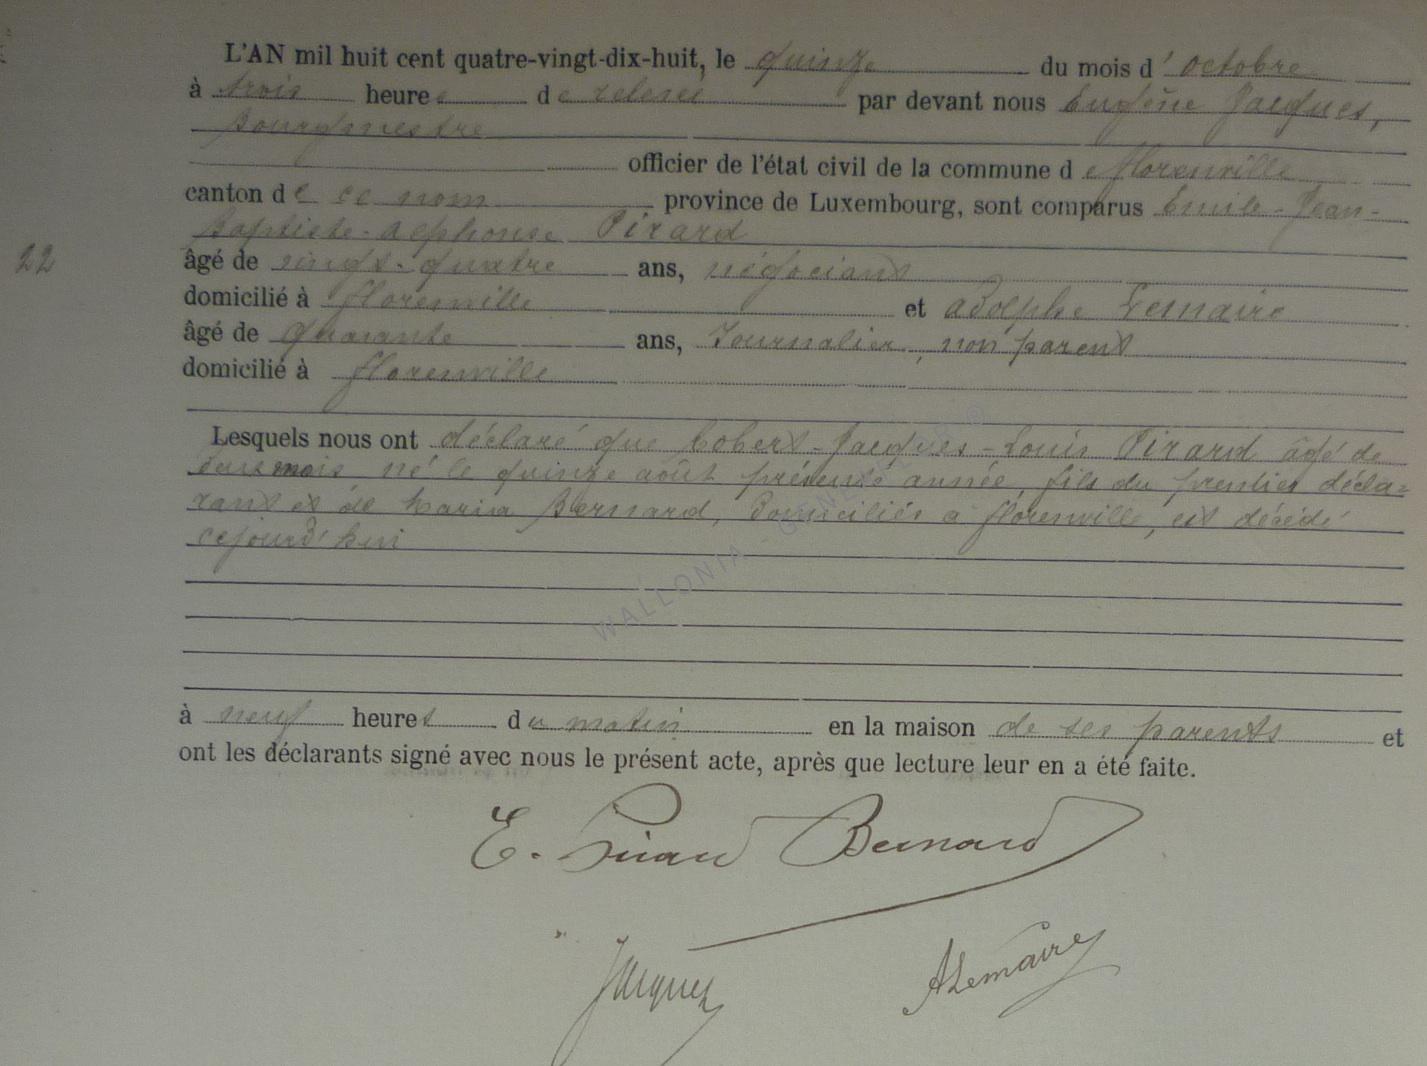 L'AN mil huit cent quatre-vingt-dix-huit, le quinze du mois d'octobre
à trois heures de relevée par devant nous Eugène Jacques,
Bourgmestre
officier de l'état civil de la commune de Florenville
canton de ce nom province de Luxembourg, sont comparus Emile-Jean-
Baptiste-Alphonse Pirard
22
âgé de vingt-quatre ans, négociant
domicilié à Florenville et Adolphe Lemaire
âgé de quarante ans, Journalier, non parent
domicilié à Florenville
Lesquels nous ont déclaré que Robert-Jacques-Louis Pirard âgé de
deux mois né le quinze août présente année, fils du premier décla=
rant et de Maria Bernard, domiciliés à Florenville, est décédé
cejourd'hui
à neuf heures du matin en la maison de ses parents et
ont les déclarants signé avec nous le présent acte, après que lecture leur en a été faite.
E. Pirard Bernard
Jacques ALemaire
WALLONIA - GENEALOGIE ©